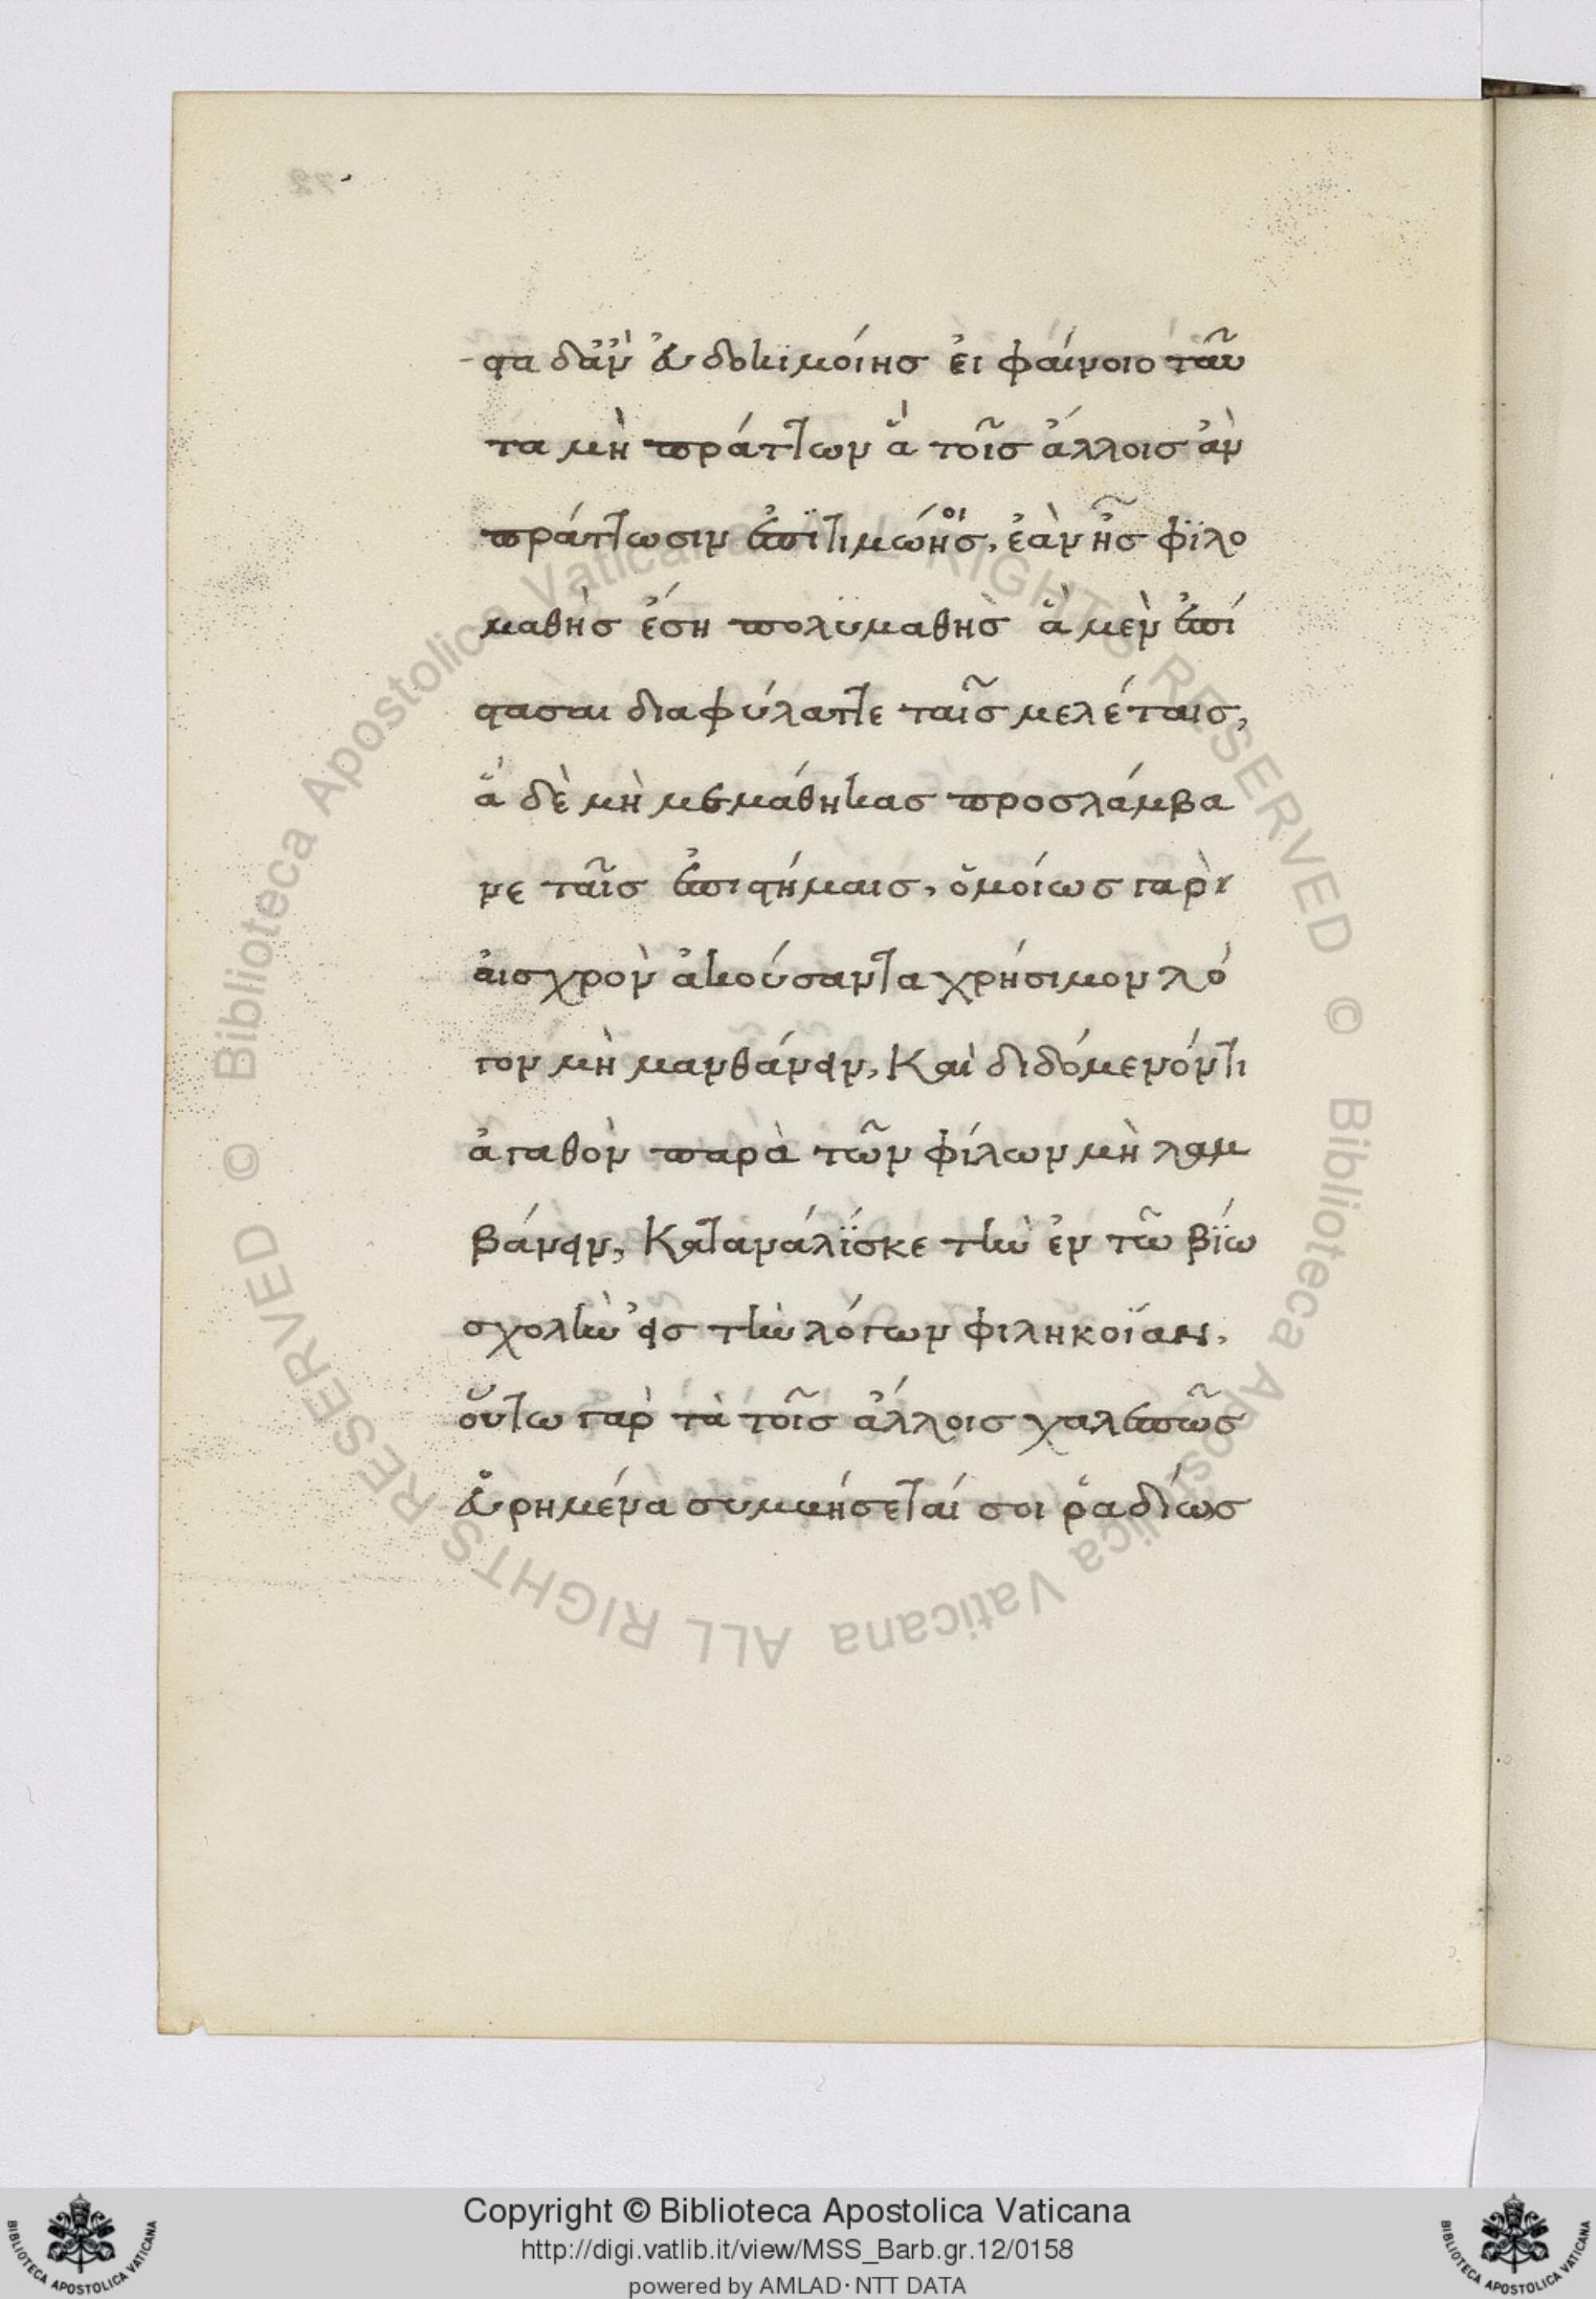 -στα δ' ἂν εὐδοκιμοίης εἰ φαίνοιο ταῦ
τα μὴ πράττων ἃ τοῖς ἄλλοις ἂν
πράττωσιν ἐπιτιμώης. ἐὰν ἦς φϊλο
οι
μαθὴς ἔση πολϋμαθὴς ἃ μὲν ἐπί
στασαι διαφύλαττε ταῖς μελέταις,
ἃ δὲ μὴ μεμάθηκας προσλάμβα
νε ταῖς ἐπιστήμαις, ὁμοίως γὰρ
αἰσχρὸν ἀκούσαντα χρήσιμον λό
γον μὴ μανθάνειν, Καὶ διδόμενόν τι
ἀγαθὸν παρὰ τῶν φίλων μὴ λαμ
βάνειν, Καταναλΐσκε τὴν ἐν τῶ βΐω
σχολὴν εἰς τὴν λόγων φιληκοΐαν.
οὕτω γὰρ τὰ τοῖς ἄλλοις χαλεπῶς
εὑρημένα συμβήσεταί σοι ῥαδίως
Copyright © Biblioteca Apostolica Vaticana
http://digi.vatlib.it/view/MSS_Barb.gr.12/0158
powered by AMLAD·NTT DATA
© Biblioteca Apostolica Vaticana ALL RIGHTS RESERVED © Biblioteca Apostolica Vaticana ALL RIGHTS RESERVED
BIBLIOTECA APOSTOLICA VATICANA
BIBLIOTECA APOSTOLICA VATICANA